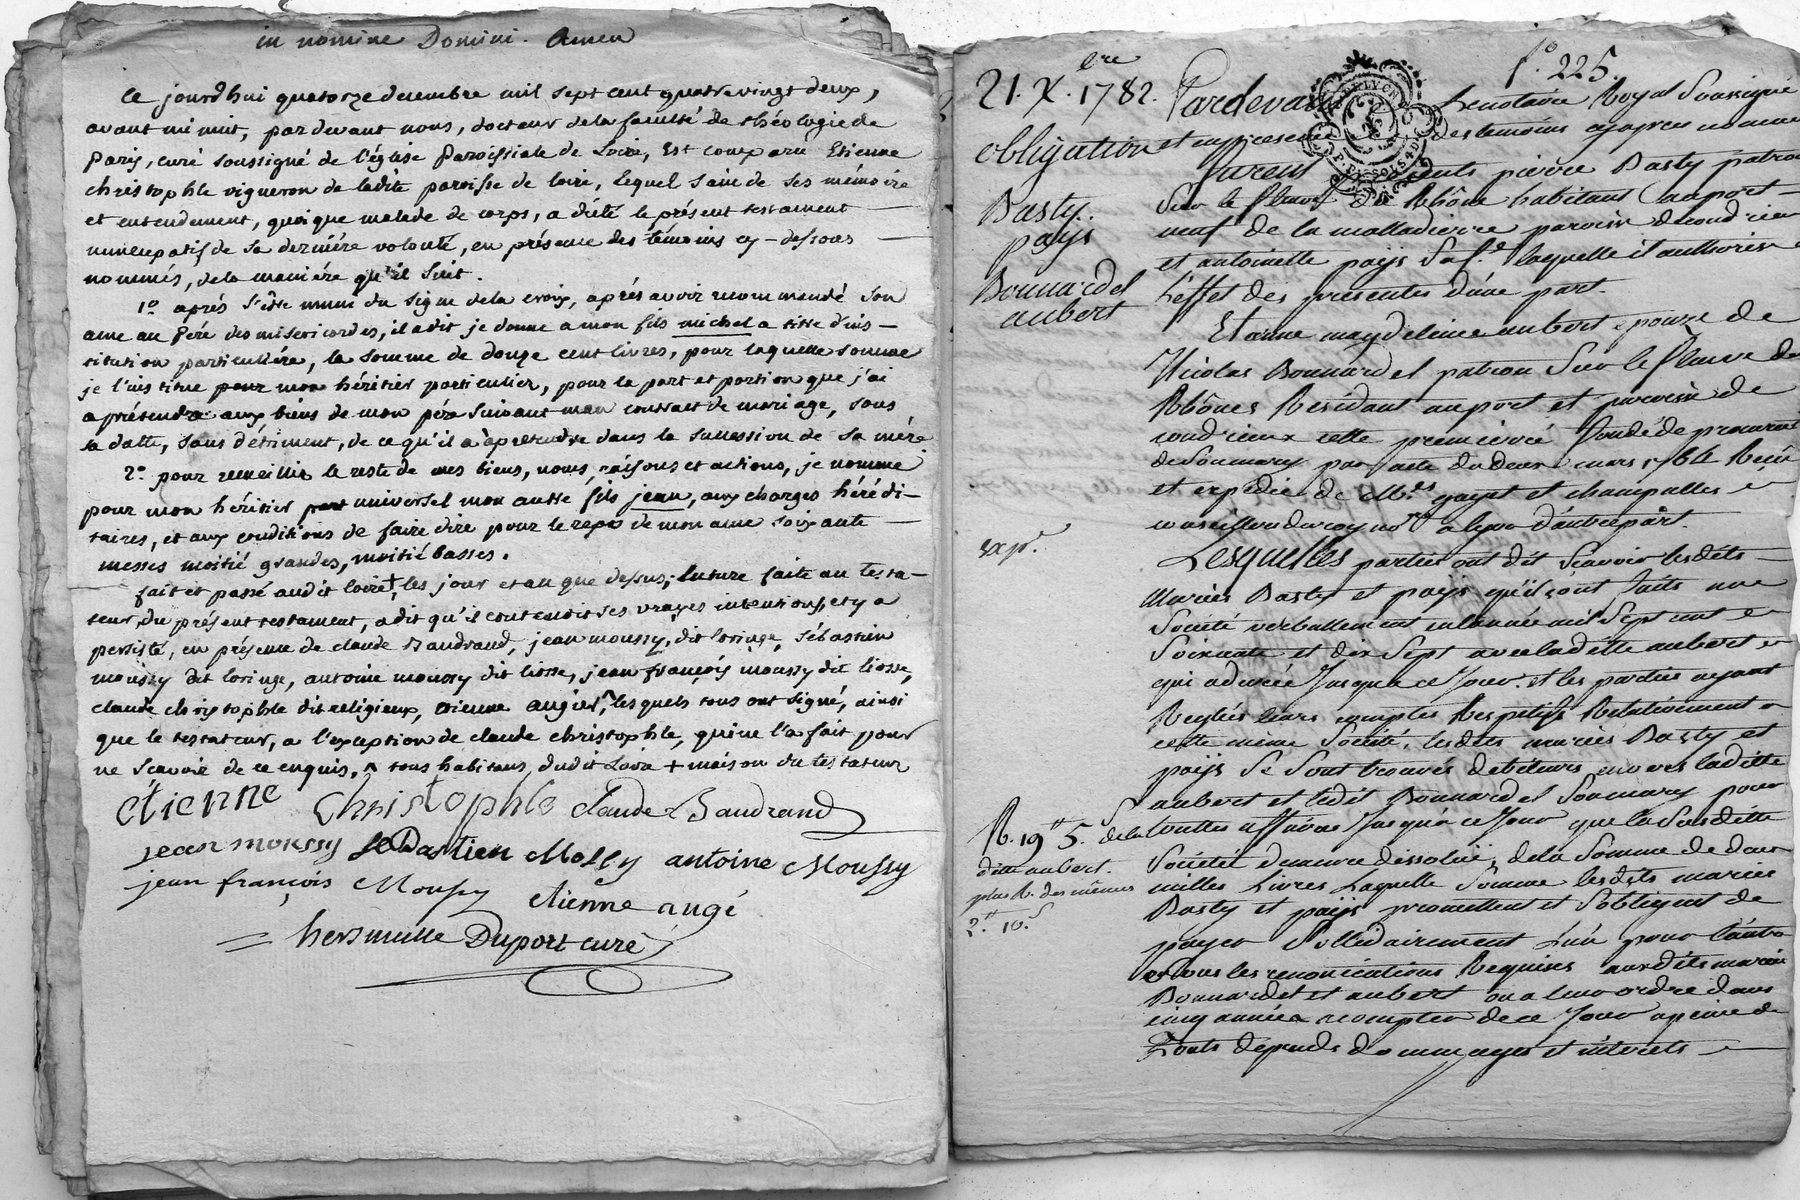 in nomine Domini. Amen
Ce jourdhui quatorze decembre mil sept cent quatre vingt deux,
avant minuit, par devant nous, docteur de la faculté de théologie de
paris, curé soussigné de l'église paroissiale de Loire, Est comparu Etienne
christophle vigneron de ladite paroisse de loire, lequel sain de ses mémoire
et entendement, quoique malade de corps, a dicté le présent testament
nuncupatif de sa derniére volonté, en présence des témoins cy-dessous
nommés, de la maniére qu'il suit.
1.º aprés s'être muni du signe de la croix, aprés avoir recommandé son
ame au Pére des misericordes, il a dit je donne a mon fils michel a titre d'ins-
titution particuliére, la somme de douze cent livres, pour laquelle somme
je l'institue pour mon héritier particulier, pour la part et portion que j'ai
a prétendre aux biens de mon pére suivant mon contract de mariage, sous
sa datte, sans détriment, de ce qu'il a à prétendre dans la succession de sa mére
2.º pour recueillir le reste de mes biens, noms, raisons et actions, je nomme
pour mon héritier universel mon autre fils jean, aux charges hérédi-
taires, et aux conditions de faire dire pour le repos de mon ame soixante
messes moitié grandes, moitié basses.
fait et passé audit loire +, les jour et an que dessus; lecture faite au testa-
teur du présent testament, a dit qu'il contenoit ses vrayes intentions, et y a
persisté, en présence de claude Baudrand, jean moussy, dit loringe, sébastien
moussy dit loringe, antoine moussy dit liosse, jean françois moussy dit liosse,
claude christophle dit religieux, etienne augier, ^ lesquels tous ont signé, ainsi
que le testateur, a l'exception de claude christophle, qui ne l'a fait pour
ne scavoir de ce enquis. ^ tous habitans dudit Loire + maison du testateur
étienne Christophle claude Baudrand
jean moussy Sebastien Mossy antoine Moussy
jean françois Moussy étienne augé
= hersmulle Duport curé
f.º 225.
21. X.bre 1782. Pardevant Le notaire Royal Soussigné
obligation et en presence des temoins cyapres nommés
furent presents pierre Basty patron
Basty. Sur le fleuve du Rhône habitant au port
pays neuf de la malladierre paroisse de condrieu
et antoinette pays Sa f.e laquelle il authorise a
Bonnardel L'effet des presentes d'une part.
aubert
Et anne magdeleine aubert epouze de
Nicolas Bonnardel patron Sur le fleuve du
Rhônes Residant au port et paroisse de
condrieux cette premiere fondé de procuration
de Son mary par acte du deux mars 1764 Reçu
et expédié de M.es guyot et champalles
conseillers du roy no.res a lyon d'autre part.
exp.e
Lesquelles parties ont dit Scavoir lesdits
Mariés Basty et pays qu'ils ont faits une
Societé verballement en l'année mil Sept cent
Soixante et dix Sept avec ladite aubert
qui a durée Jusqua ce Jour. et les parties ayant
Reglés leurs comptes Respetifs Relativement a
cette même Societé, lesdits mariés Basty et
pays Se Sont trouvés debiteurs envers ladite
aubert et ledit Bonnardel Son mary pour
R. 19# 5.s de la touttes affaires Jusqua ce Jour que la Susdite
dite aubert. Societé demeure dissolüe, de la Somme de deux
plus R. des mêmes milles Livres Laquelle Somme lesdits mariés
2.# 10.s Basty et pays promettent et S'obligent de
payer Sollidairement l'un pour l'autre
Sous les renonciations Requises auxdits mariés
Bonnardel et aubert ou a leur ordre dans
cinq années a compter de ce Jour a peine de
touts depends dommages et interets